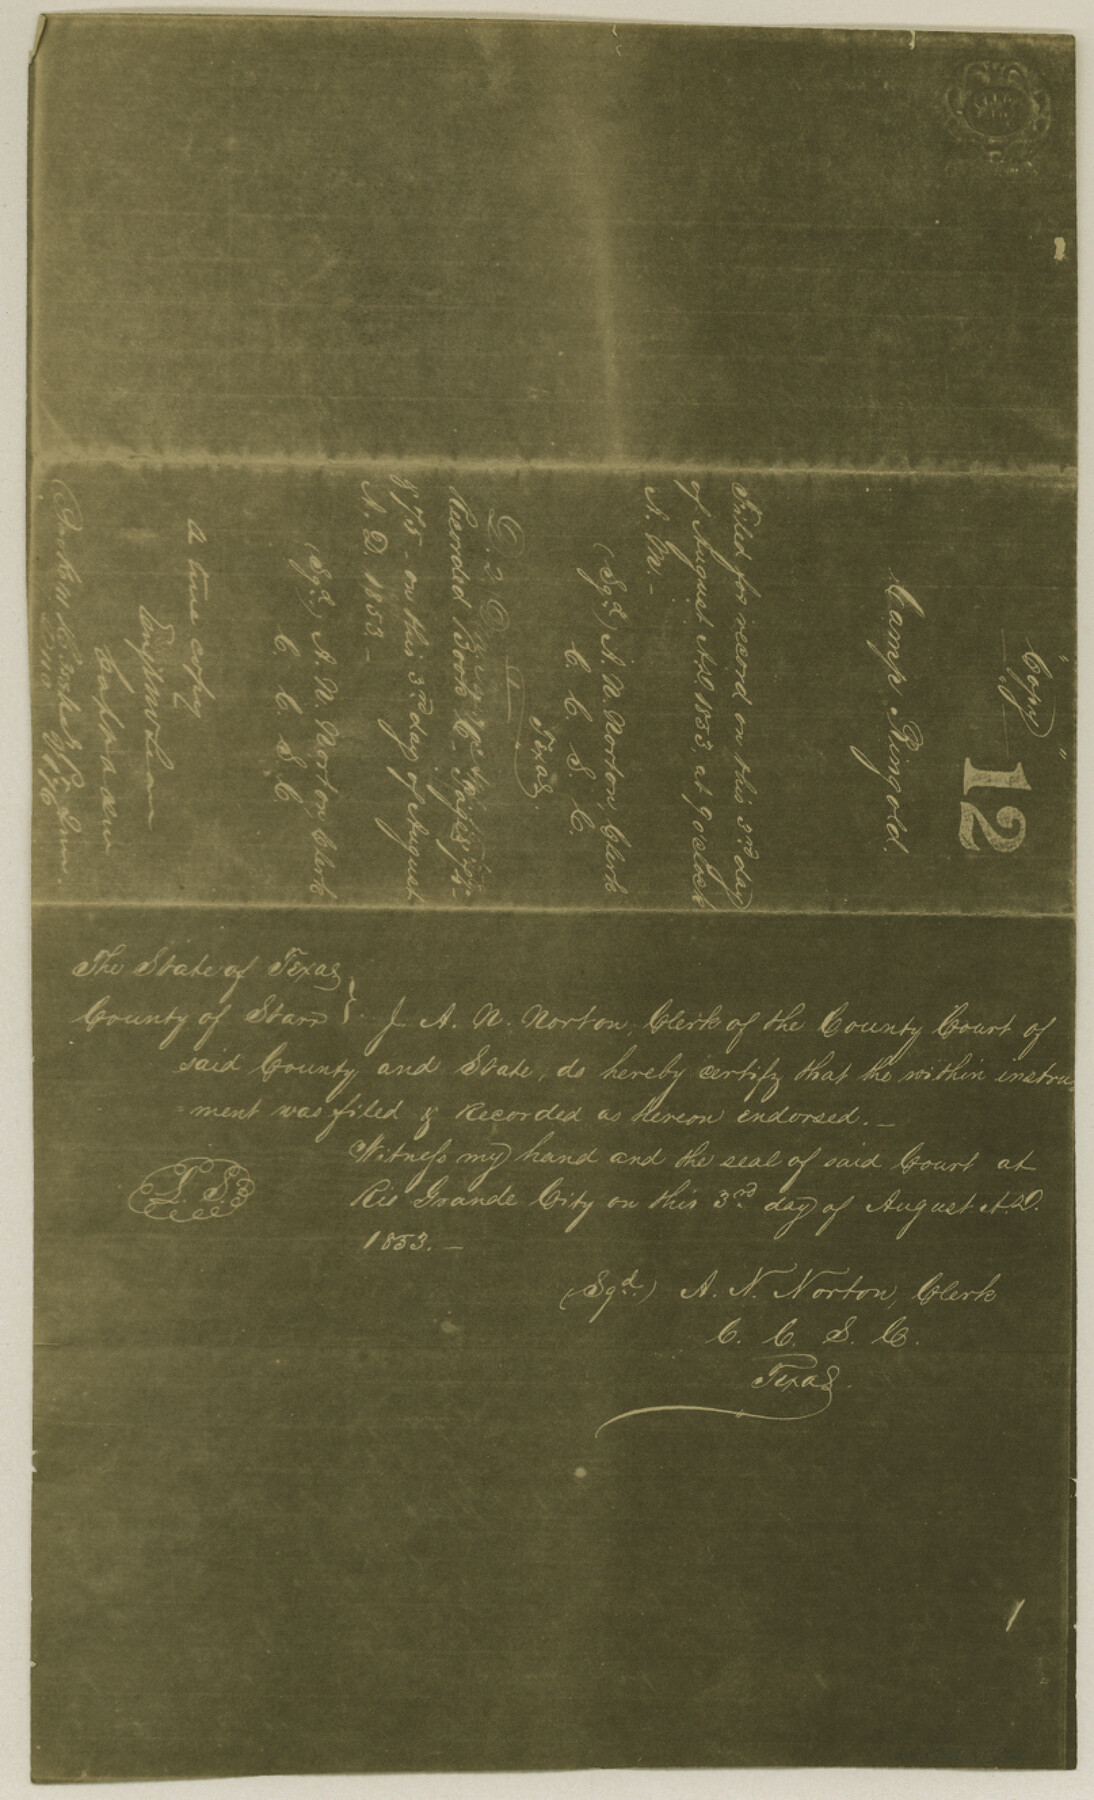 "Copy"
12
Camp Ringold.
Filed for record on this 3rd day
of August A.D 1853, at 9 oclock
A. M. –
(Sgd.) A. N. Norton, Clerk
C. C. S. C.
Texas.
Recorded Book
& 75 – on this 3rd day of August
A. D. 1853 –
(Sgd.) A. N. Norton Clerk
C. C. S. C.
a true copy
The State of Texas }
County of Starr } I A. N. Norton, Clerk of the County Court of
said County and State, do hereby certify that the within instru
=ment was filed & Recorded as hereon endorsed. –
Witness my hand and the seal of said Court at
L. S. Rio Grande City on this 3rd day of August A.D.
1853. –
(Sgd.) A. N. Norton, Clerk
C. C. S. C.
Texas.